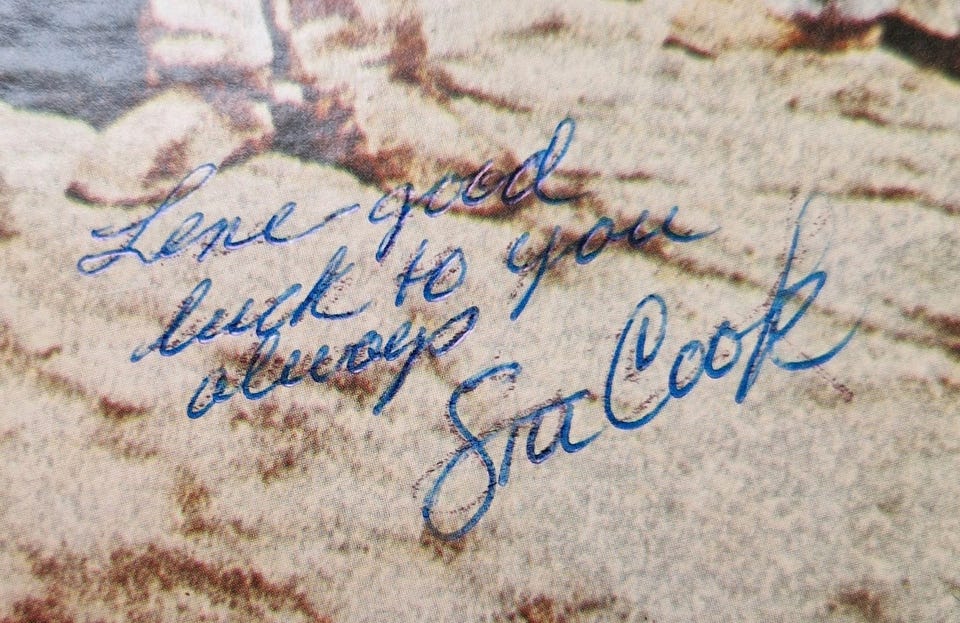 Lene good
luck to you
always
Stu Cook